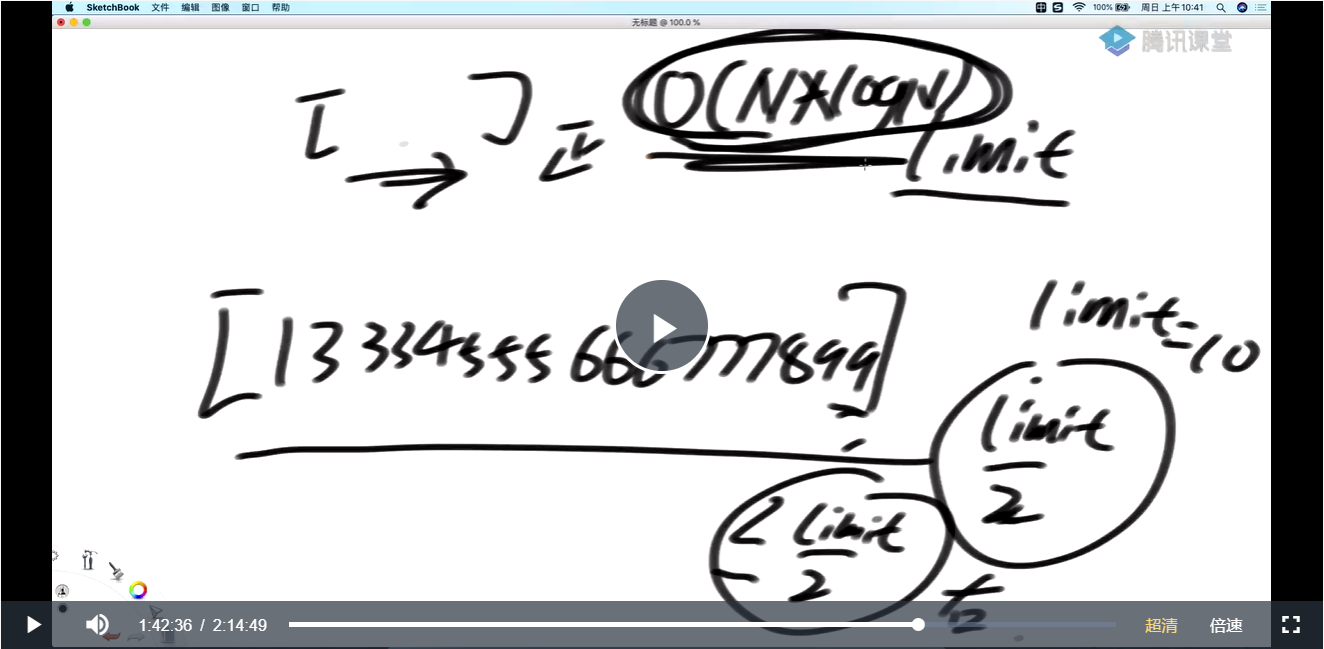 SketchBook 文件 编辑 图像 窗口 帮助 100% 周日 上午10:41
无标题 @ 100.0 %
腾讯课堂
[ ] 正 O(N*logN)
limit
[1333455566677778999]
limit=10
limit
2
≤ limit
2
1:42:36 / 2:14:49 超清 倍速